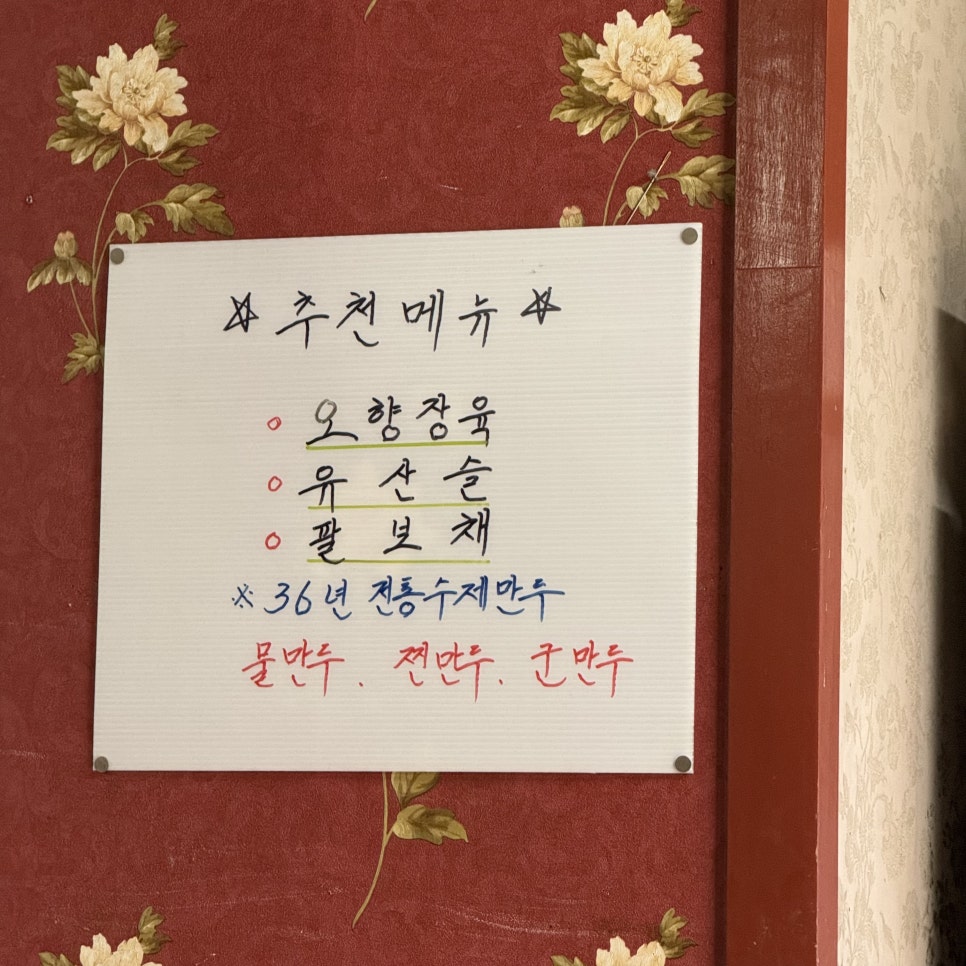 ☆추천메뉴☆
○ 오향장육
○ 유산슬
○ 팔보채
※36년 전통수제만두
물만두. 찐만두. 군만두